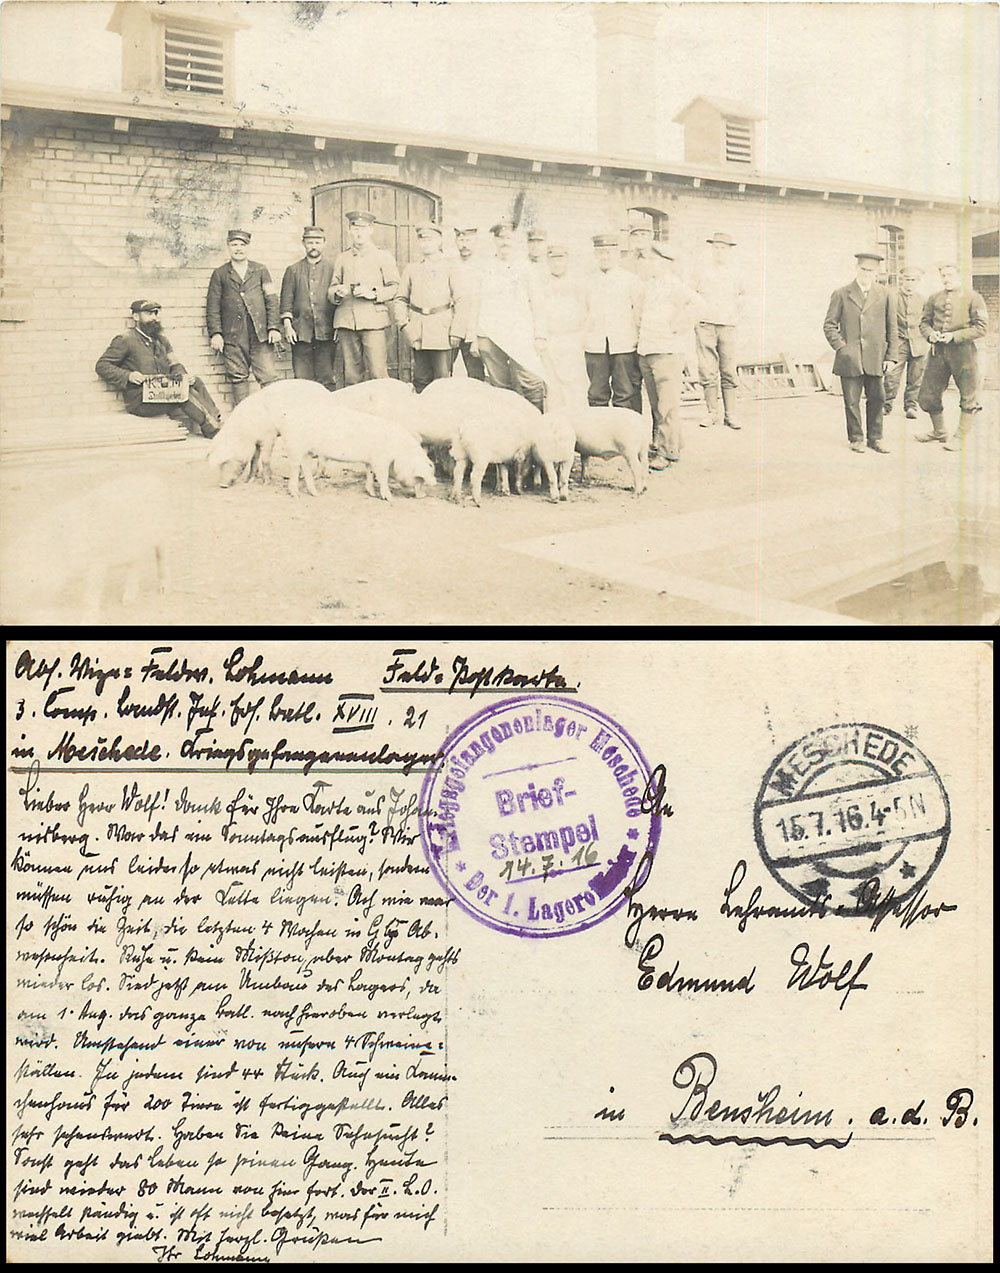 K.G.M.
Abs. Vize-Feldw. Lohmann
Feld-Postkarte.
3. Comp. Landst. Inf. Ers. Batl. XVIII. 21
in Meschede. Kriegsgefangenenlager.
Lieber Herr Wolf! Dank für Ihre Karte aus Johan-
nisberg. War das ein Sonntagsausflug? Wir
können uns leider so etwas nicht leisten, sondern
müssen ruhig an der Kette liegen. Ach wie war
so schön die Zeit, die letzten 4 Wochen in Ab-
wesenheit. Ruhe u. kein Mißton, aber Montag gehts
wieder los. Sind jetzt am Umbau des Lagers, da
am 1. Aug. das ganze Batl. nach hieroben verlegt
wird. Umstehend einer von unsern 4 Schweine-
ställen. In jedem sind 44 Stück. Auch ein Kanin-
chenhaus für 200 Tiere ist fertiggestellt. Alles
sehr sehenswert. Haben Sie keine Sehnsucht?
Sonst geht das Leben so seinen Gang. Heute
sind wieder 80 Mann von hier fort. Der II. L.O.
wechselt ständig u. ist oft nicht besetzt, was für mich
viel Arbeit giebt. Mit herzl. Grüßen
Ihr Lohmann
Kriegsgefangenenlager Meschede
Brief-
Stempel
14.7.16
* Der 1. Lageroffizier *
MESCHEDE
15.7.16.4-5N
An
Herrn Lehramts-Assessor
Edmund Wolf
in Bensheim. a.d. B.